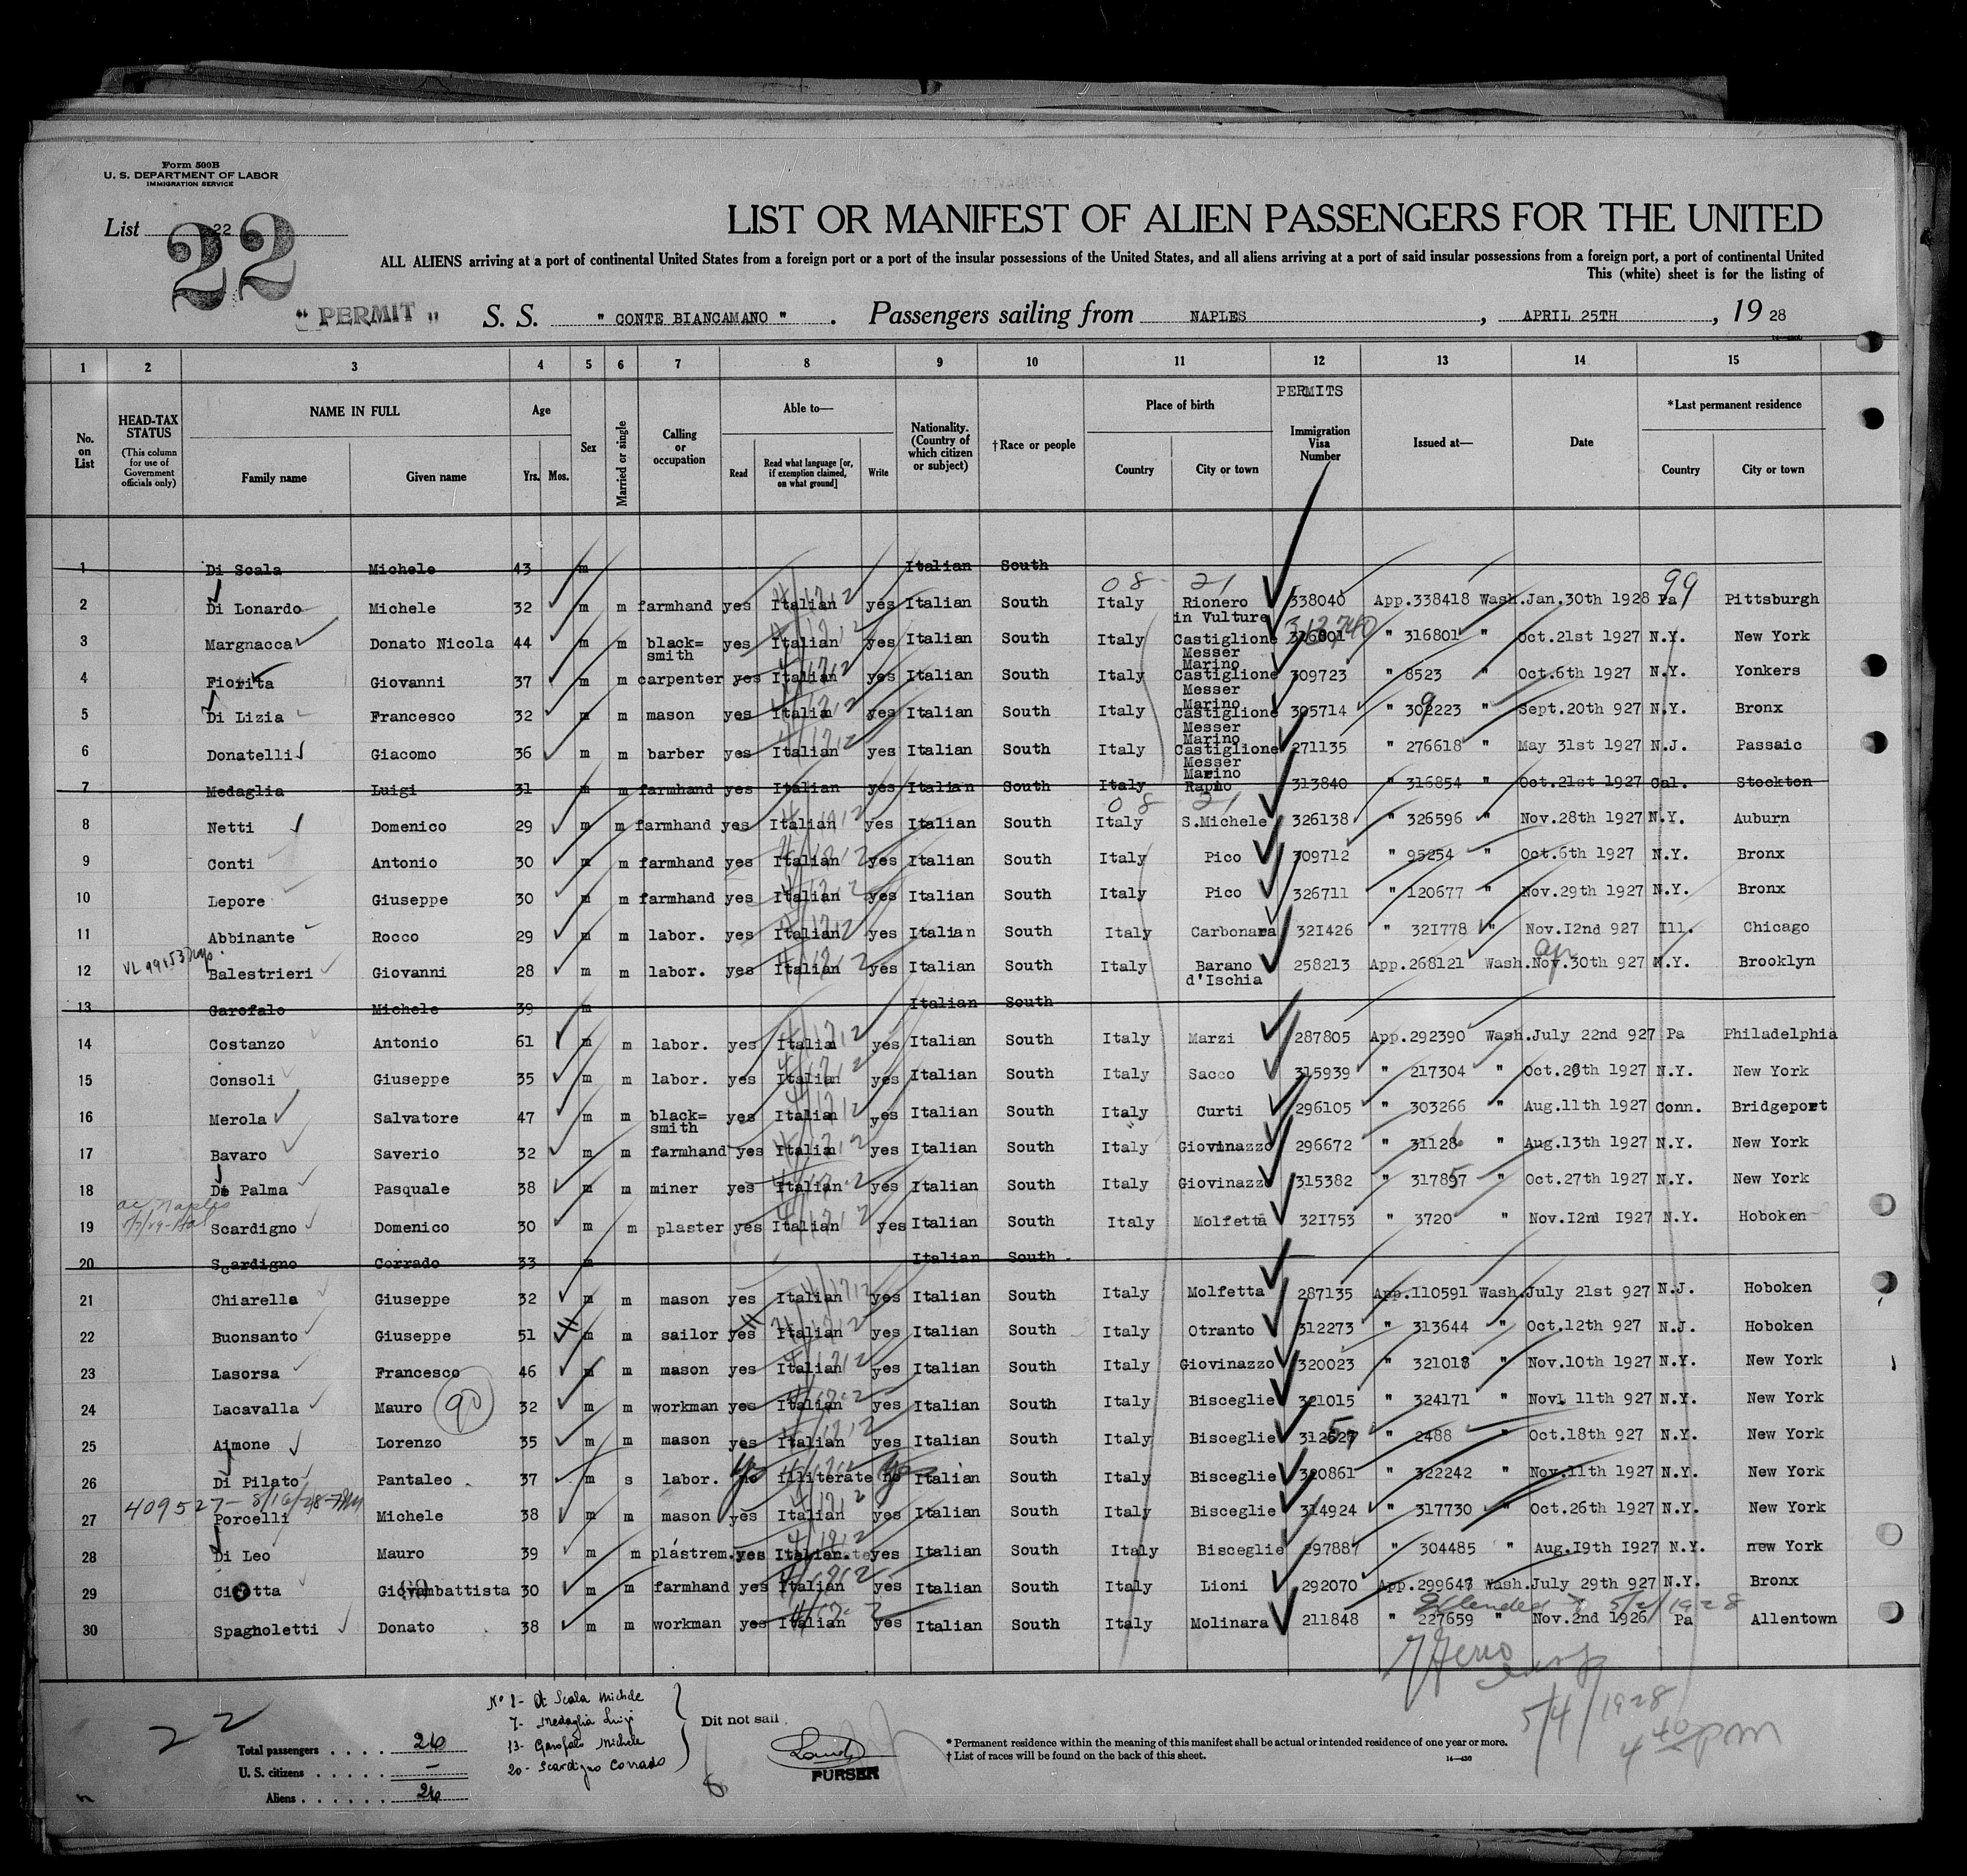 Form 500B
U. S. DEPARTMENT OF LABOR
IMMIGRATION SERVICE
List 22
22
LIST OR MANIFEST OF ALIEN PASSENGERS FOR THE UNITED
ALL ALIENS arriving at a port of continental United States from a foreign port or a port of the insular possessions of the United States, and all aliens arriving at a port of said insular possessions from a foreign port, a port of continental United
This (white) sheet is for the listing of
" PERMIT " S. S. " CONTE BIANCAMANO " . Passengers sailing from NAPLES , APRIL 25TH , 19 28
1 2 3 4 5 6 7 8 9 10 11 12 13 14 15
No. on List
HEAD-TAX STATUS (This column for use of Government officials only)
NAME IN FULL
Family name Given name
Age Yrs. Mos.
Sex
Married or single
Calling or occupation
Able to—
Read
Read what language [or, if exemption claimed, on what ground]
Write
Nationality. (Country of which citizen or subject)
†Race or people
Place of birth
Country City or town
PERMITS
Immigration Visa Number
Issued at—
Date
*Last permanent residence
Country City or town
1 Di Scala Michele 43 m Italian South
08 21 99
2 Di Lonardo Michele 32 m m farmhand yes Italian yes Italian South Italy Rionero in Vulture 338040 App.338418 Wash. Jan.30th 1928 Pa Pittsburgh
3 Margnacca Donato Nicola 44 m m black=smith yes Italian yes Italian South Italy Castiglione Messer Marino 316801 " 316801 " Oct.21st 1927 N.Y. New York
4 Fiorita Giovanni 37 m m carpenter yes Italian yes Italian South Italy Castiglione Messer Marino 309723 " 8523 " Oct.6th 1927 N.Y. Yonkers
5 Di Lizia Francesco 32 m m mason yes Italian yes Italian South Italy Castiglione Messer Marino 305714 " 309223 " Sept.20th 927 N.Y. Bronx
6 Donatelli Giacomo 36 m m barber yes Italian yes Italian South Italy Castiglione Messer Marino 271135 " 276618 " May 31st 1927 N.J. Passaic
7 Medaglia Luigi 31 m m farmhand yes Italian yes Italian South Italy 313840 " 316854 " Oct.21st 1927 Cal. Stockton
08 21
8 Netti Domenico 29 m m farmhand yes Italian yes Italian South Italy S.Michele 326138 " 326596 " Nov.28th 1927 N.Y. Auburn
9 Conti Antonio 30 m m farmhand yes Italian yes Italian South Italy Pico 309712 " 95254 " Oct.6th 1927 N.Y. Bronx
10 Lepore Giuseppe 30 m m farmhand yes Italian yes Italian South Italy Pico 326711 " 120677 " Nov.29th 1927 N.Y. Bronx
11 Abbinante Rocco 29 m m labor. yes Italian yes Italian South Italy Carbonara 321426 " 321778 " Nov.12nd 927 Ill. Chicago
12 Balestrieri Giovanni 28 m m labor. yes Italian yes Italian South Italy Barano d'Ischia 258213 App.268121 Wash. Nov.30th 927 N.Y. Brooklyn
13 Garofalo Michele 39 m Italian South
14 Costanzo Antonio 61 m m labor. yes Italian yes Italian South Italy Marzi 287805 App.292390 Wash. July 22nd 927 Pa Philadelphia
15 Consoli Giuseppe 35 m m labor. yes Italian yes Italian South Italy Sacco 315939 " 217304 " 1927 N.Y. New York
16 Merola Salvatore 47 m m black=smith yes Italian yes Italian South Italy Curti 296105 " 303266 " Aug.11th 1927 Conn. Bridgeport
17 Bavaro Saverio 32 m m farmhand yes Italian yes Italian South Italy Giovinazzo 296672 " " Aug.13th 1927 N.Y. New York
18 Di Palma Pasquale 38 m m miner yes Italian yes Italian South Italy Giovinazzo 315382 " 317857 " Oct.27th 1927 N.Y. New York
19 Scardigno Domenico 30 m m plaster yes Italian yes Italian South Italy Molfetta 321753 " 3720 " Nov.12nd 1927 N.Y. Hoboken
20 Scardigno Corrado 33 m Italian South
21 Chiarella Giuseppe 32 m m mason yes Italian yes Italian South Italy Molfetta 287135 App.110591 Wash. July 21st 927 N.J. Hoboken
22 Buonsanto Giuseppe 51 m m sailor yes Italian yes Italian South Italy Otranto 312273 " 313644 " Oct.12th 927 N.J. Hoboken
23 Lasorsa Francesco 46 m m mason yes Italian yes Italian South Italy Giovinazzo 320023 " 321018 " Nov.10th 1927 N.Y. New York
24 Lacavalla Mauro 90 32 m m workman yes Italian yes Italian South Italy Bisceglie 321015 " 324171 " Nov. 11th 927 N.Y. New York
25 Aimone Lorenzo 35 m m mason yes Italian yes Italian South Italy Bisceglie " 2488 " Oct.18th 927 N.Y. New York
26 Di Pilato Pantaleo 37 m s labor. no illiterate no Italian South Italy Bisceglie 320861 " 322242 " Nov.11th 1927 N.Y. New York
409527 - 8/16/28
27 Porcelli Michele 38 m m mason yes Italian yes Italian South Italy Bisceglie 314924 " 317730 " Oct.26th 1927 N.Y. New York
28 Di Leo Mauro 39 m m plástrem. yes Italian yes Italian South Italy Bisceglie 297887 " 304485 " Aug.19th 1927 N.Y. new York
29 Ciotta Giovambattista 30 m m farmhand yes Italian yes Italian South Italy Lioni 292070 App.299647 Wash. July 29th 927 N.Y. Bronx
Extended to 5/2/1928
30 Spagnoletti Donato 38 m m workman yes Italian yes Italian South Italy Molinara 211848 " 227659 " Nov.2nd 1926 Pa Allentown
5/4/1928
4 40 pm
22
Total passengers . . . . 26
U. S. citizens . . . . . —
Aliens . . . . . . 26
No 1- Di Scala Michele
7- Medaglia Luigi
13- Garofalo Michele
20- Scardigno Corrado
Dit not sail
PURSER
*Permanent residence within the meaning of this manifest shall be actual or intended residence of one year or more.
†List of races will be found on the back of this sheet.
14—430